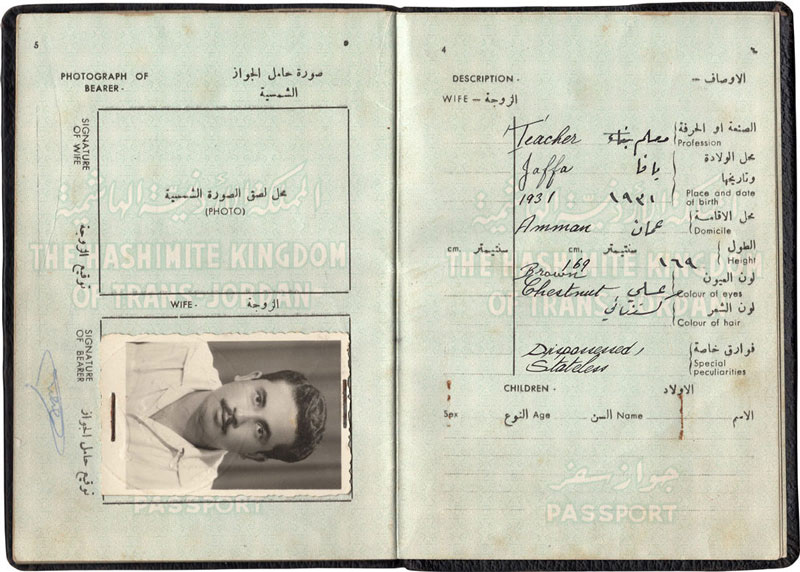 5
٥
PHOTOGRAPH OF
BEARER -
صورة حامل الجواز
الشمسية
SIGNATURE
OF WIFE
توقيع الزوجة
محل لصق الصورة الشمسية
(PHOTO)
THE HASHIMITE KINGDOM
OF TRANS-JORDAN
WIFE -
الزوجة
SIGNATURE
OF BEARER
توقيع حامل الجواز
PASSPORT
4
٤
DESCRIPTION -
الاوصاف —
WIFE — الزوجة
Teacher معلم الصنعة او الحرفة
Profession
Jaffa يافا محل الولادة
وتاريخها
1931 ١٩٣١ Place and date
of birth
Amman عمان محل الاقامة
Domicile
cm. سنتيمتر cm. سنتيمتر الطول
169 ١٦٩ Height
Brown عسلي لون العيون
Colour of eyes
Chestnut كستنائي لون الشعر
Colour of hair
Stateless فوارق خاصة
Special
peculiarities
CHILDREN - الاولاد
Sex النوع Age السن Name الاسم
THE HASHIMITE KINGDOM
OF TRANS-JORDAN
جواز سفر
PASSPORT